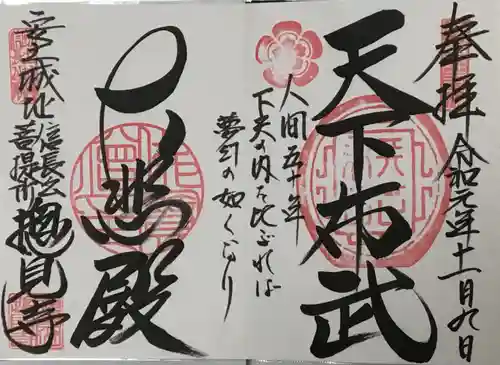 奉拝 令和元年十一月九日
天下布武
人間五十年
下天の内を比ぶれば
夢幻の如くなり
大悲殿
信長公
菩提所
安土城址
摠見寺